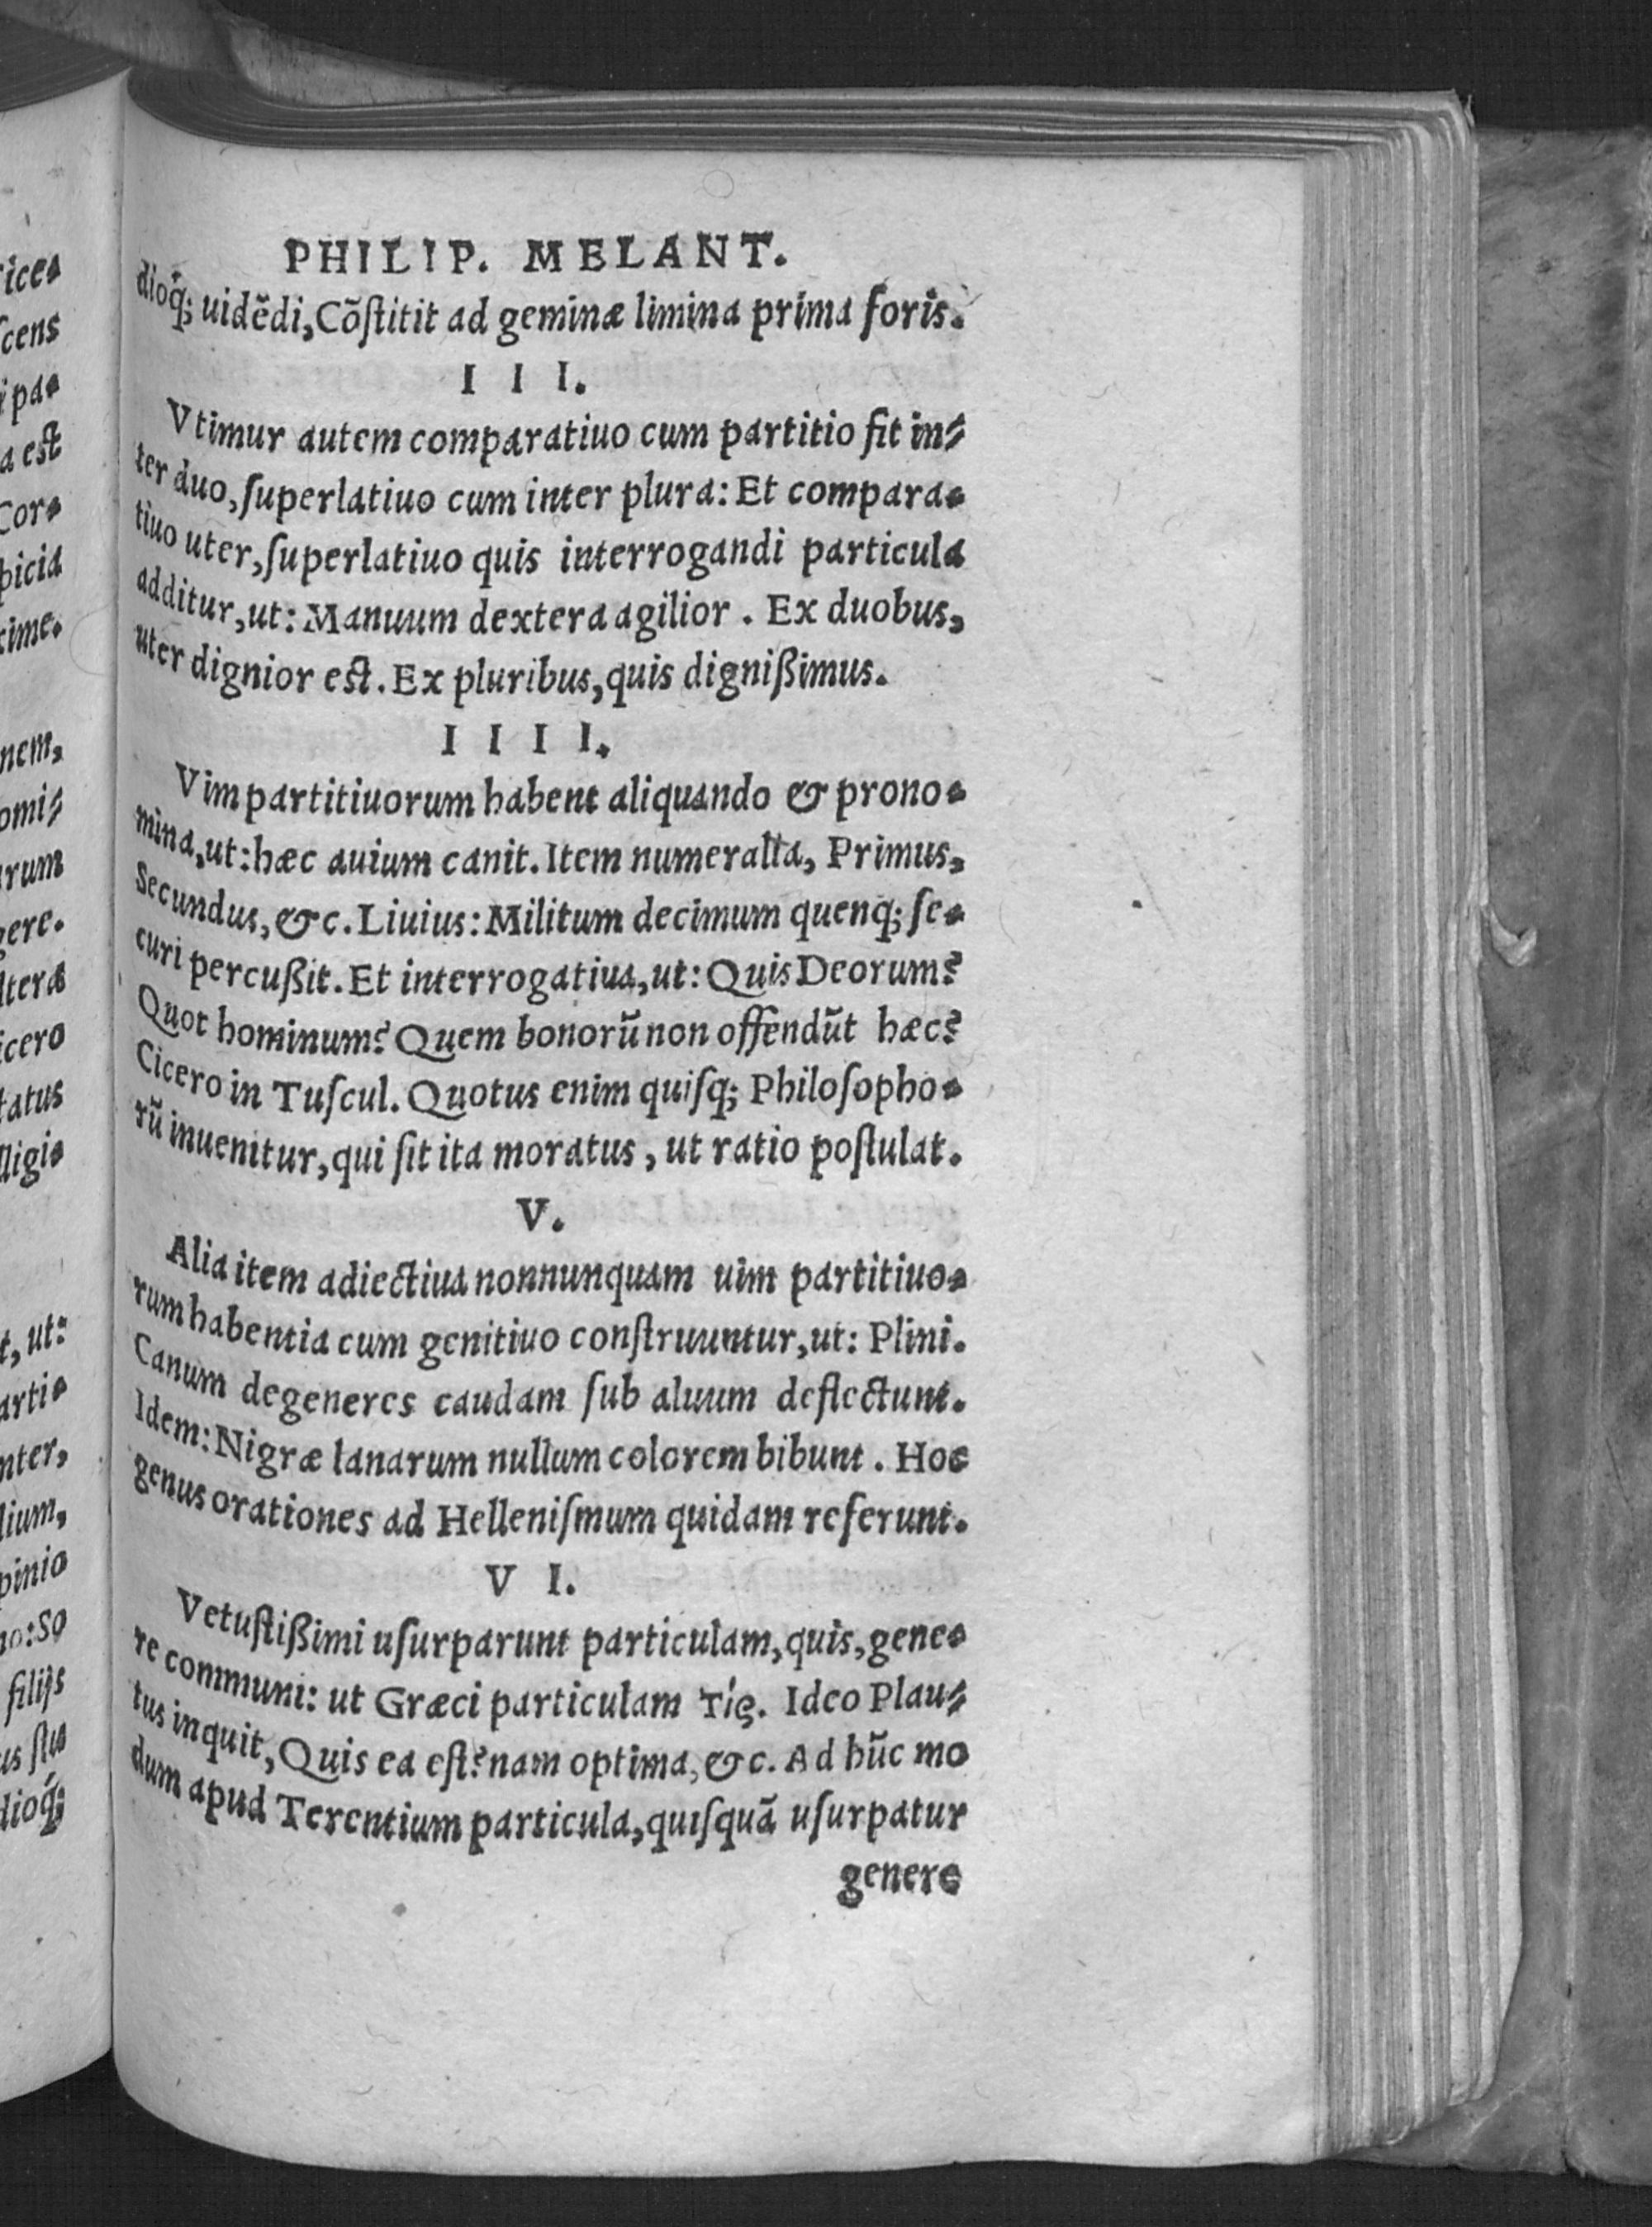 PHILIP. MELANT.
dioq́; uidēdi, Cōſtitit ad geminæ limina prima foris.
I I I.
Vtimur autem comparatiuo cum partitio fit in⸗
ter duo, ſuperlatiuo cum inter plura: Et compara⸗
tiuo uter, ſuperlatiuo quis interrogandi particula
additur, ut: Manuum dextera agilior. Ex duobus,
uter dignior est. Ex pluribus, quis dignißimus.
I I I I.
Vim partitiuorum habent aliquando & prono⸗
mina, ut: hæc auium canit. Item numeralia, Primus,
Secundus, &c. Liuius: Militum decimum quenq; ſe⸗
curi percußit. Et interrogatiua, ut: Quis Deorum?
Quot hominum? Quem bonorū non offendūt hæc?
Cicero in Tuſcul. Quotus enim quiſq; Philoſopho⸗
rū inuenitur, qui ſit ita moratus, ut ratio poſtulat.
V.
Alia item adiectiua nonnunquam uim partitiuo⸗
rum habentia cum genitiuo conſtruuntur, ut: Plini.
Canum degeneres caudam ſub aluum deflectunt.
Idem: Nigræ lanarum nullum colorem bibunt. Hoc
genus orationes ad Helleniſmum quidam referunt.
V I.
Vetuſtißimi uſurparunt particulam, quis, gene⸗
re communi: ut Græci particulam τίς. Ideo Plau⸗
tus inquit, Quis ea eſt? nam optima, &c. Ad hūc mo
dum apud Terentium particula, quiſquā uſurpatur
genere